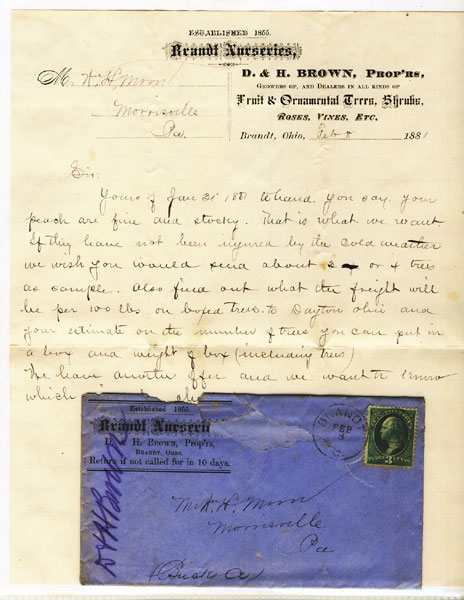 ESTABLISHED 1855.
Brandt Nurseries,
D. & H. BROWN, Prop'rs,
GROWERS OF, AND DEALERS IN ALL KINDS OF
Fruit & Ornamental Trees, Shrubs,
ROSES, VINES, ETC.
Brandt, Ohio, Feb 8 1881
M. A. H. Moon
Morrisville
Pa.
Sir:
Yours of Jan 31 1881 to hand. You say your
peach are fine and stocky. That is what we want.
If they have not been injured by the cold weather
we wish you would send about 3 or 4 trees
as sample. Also find out what the freight will
be per 100 lbs on boxed trees to Dayton Ohio and
your estimate on the number of trees you can put in
a box and weight of box (including trees)
We have another offer and we want to know
which
Established 1855.
Brandt Nurseries
D. & H. BROWN, Prop'rs,
BRANDT, OHIO.
Return if not called for in 10 days.
BRANDT
FEB
O
3
Mr A. H. Moon
Morrisville
Pa
(Bucks Co)